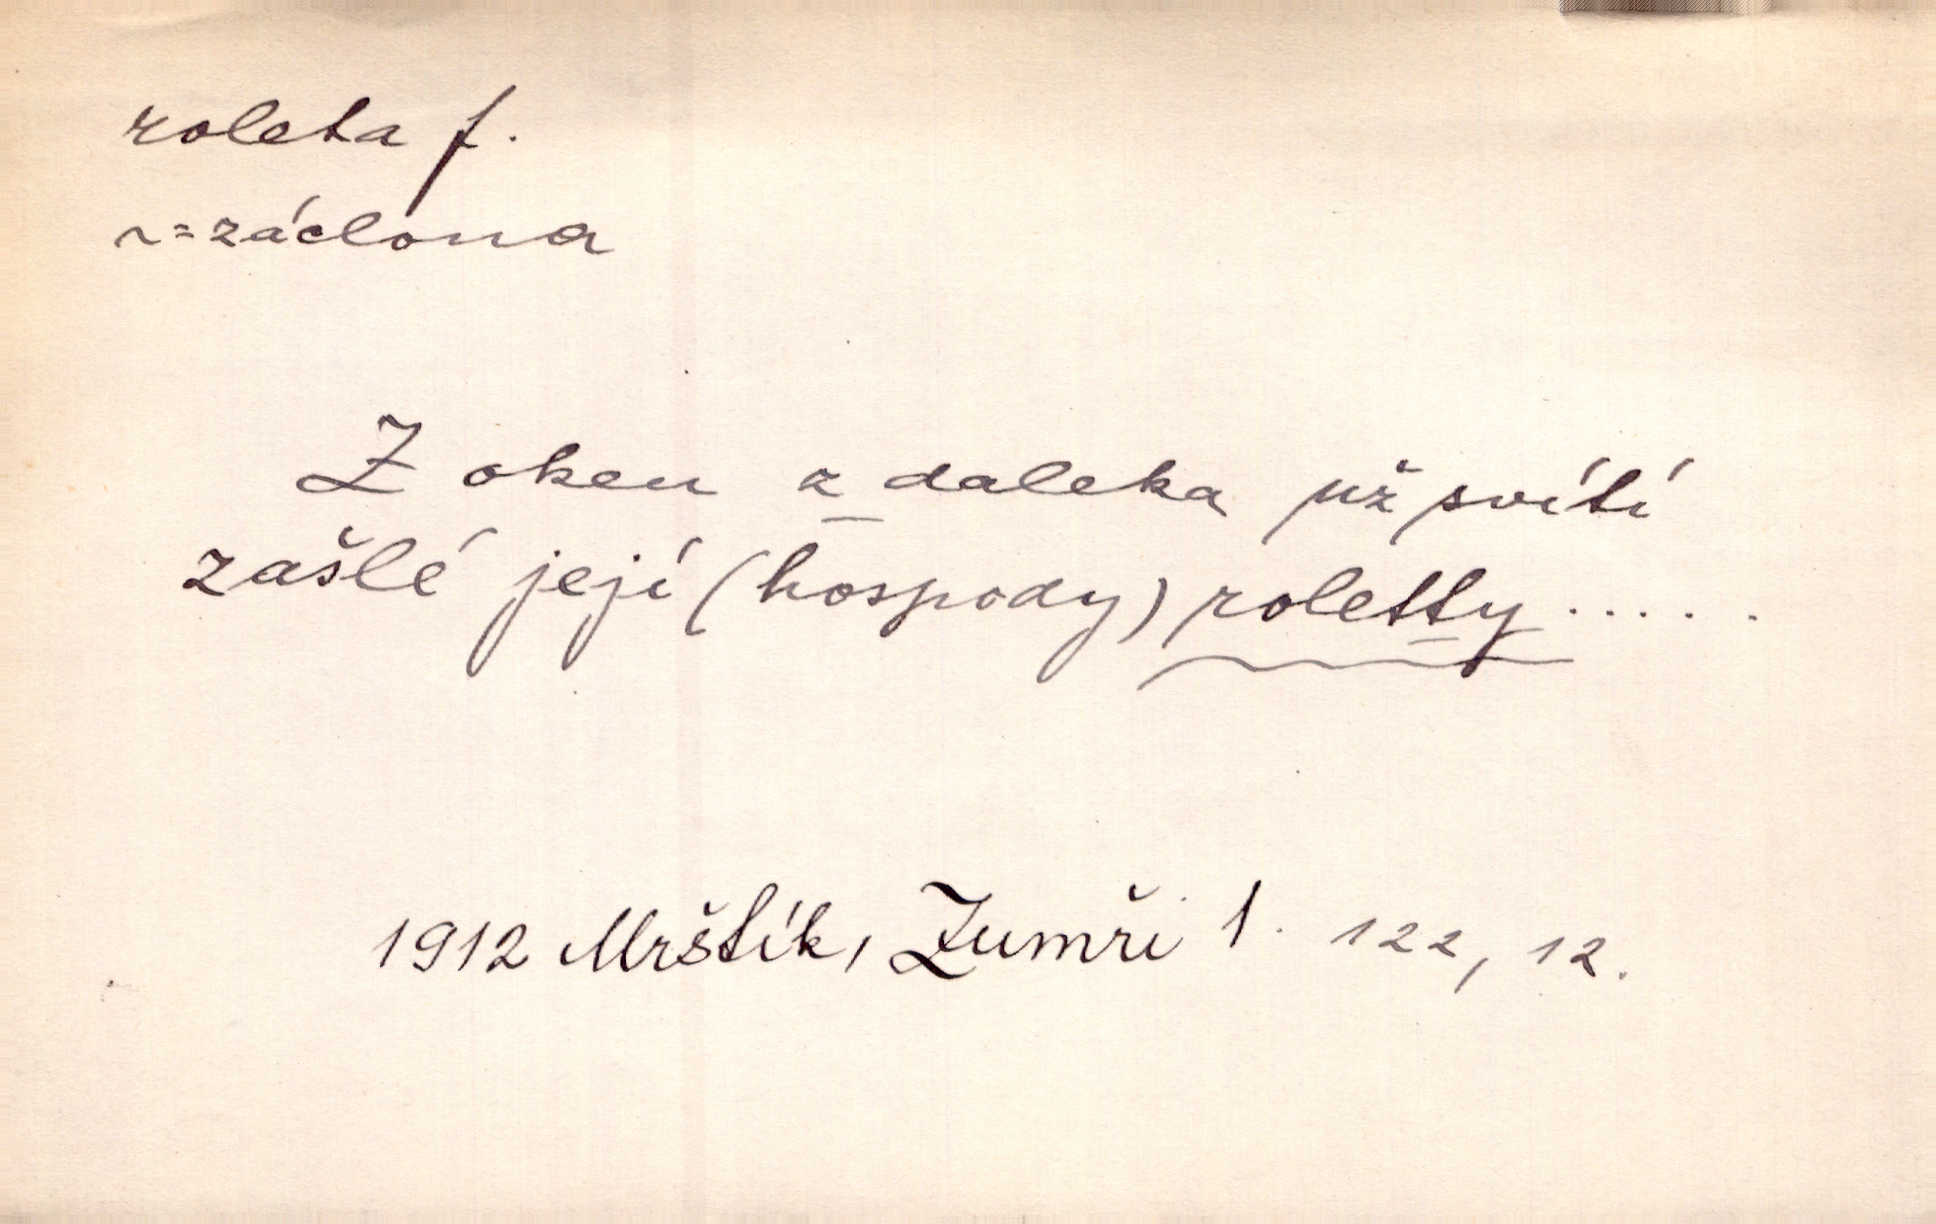 roleta f.
~=záclona
Z oken z daleka už svítí
zašlé její (hospody) roletty.....
1912 Mrštík, Zumři 1. 122, 12.